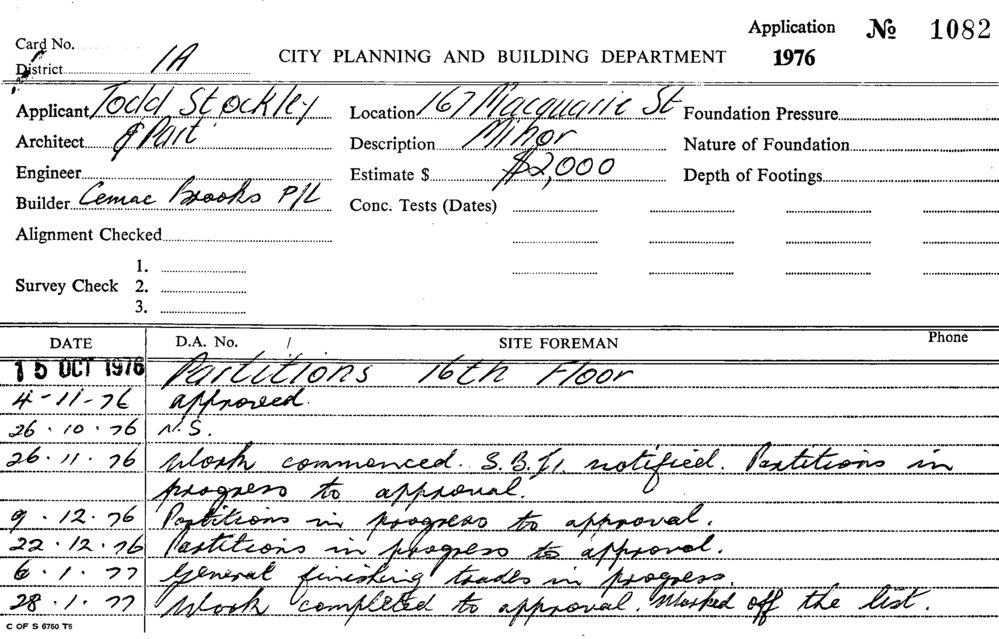 Application № 1082
Card No.
District 1A CITY PLANNING AND BUILDING DEPARTMENT 1976
Applicant Todd Stockley Location 167 Macquarie St Foundation Pressure
Architect & Part Description Minor Nature of Foundation
Engineer Estimate $ $2,000 Depth of Footings
Builder Cemac Brooks P/L Conc. Tests (Dates)
Alignment Checked
1.
Survey Check 2.
3.
DATE D.A. No. / SITE FOREMAN Phone
15 OCT 1976 Partitions 16th Floor
4-11-76 approved.
26.10.76 N.S.
26.11.76 Work commenced. notified. Partitions in
progress to approval.
9.12.76 Partitions in progress to approval.
22.12.76 Partitions in progress to approval.
6.1.77 General finishing trades in progress.
28.1.77 Work completed to approval. Marked off the list.
C OF S 6760 T6